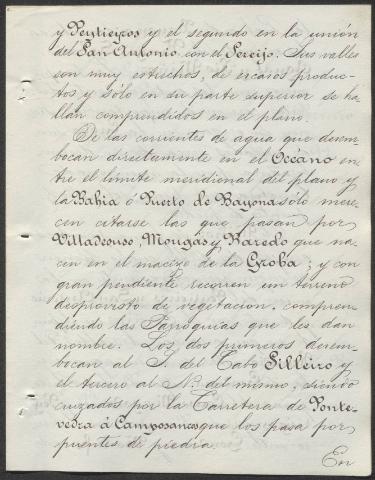 y Peytieyros y el segundo en la unión
del San Antonio con el Pereijo. Sus valles
son muy estrechos, de escasos produc-
tos y sólo en su parte superior se ha-
llan comprendidos en el plano.
De las corrientes de agua que desem-
bocan directamente en el Océano en-
tre el límite meridional del plano y
la Bahia ó Puerto de Bayona sólo mere-
cen citarse las que pasan por
Villadesuso, Mougás y Baredo que na-
cen en el macizo de la Groba; y con
gran pendiente recorren un terreno
desprovisto de vegetacion, compren-
diendo las Parroquias que les dan
nombre. Los dos primeros desem-
bocan al S. del Cabo Silleiro y
el tercero al N. del mismo, siendo
cruzados por la Carretera de Ponte-
vedra á Camposancos que los pasa por
puentes de piedra.
En